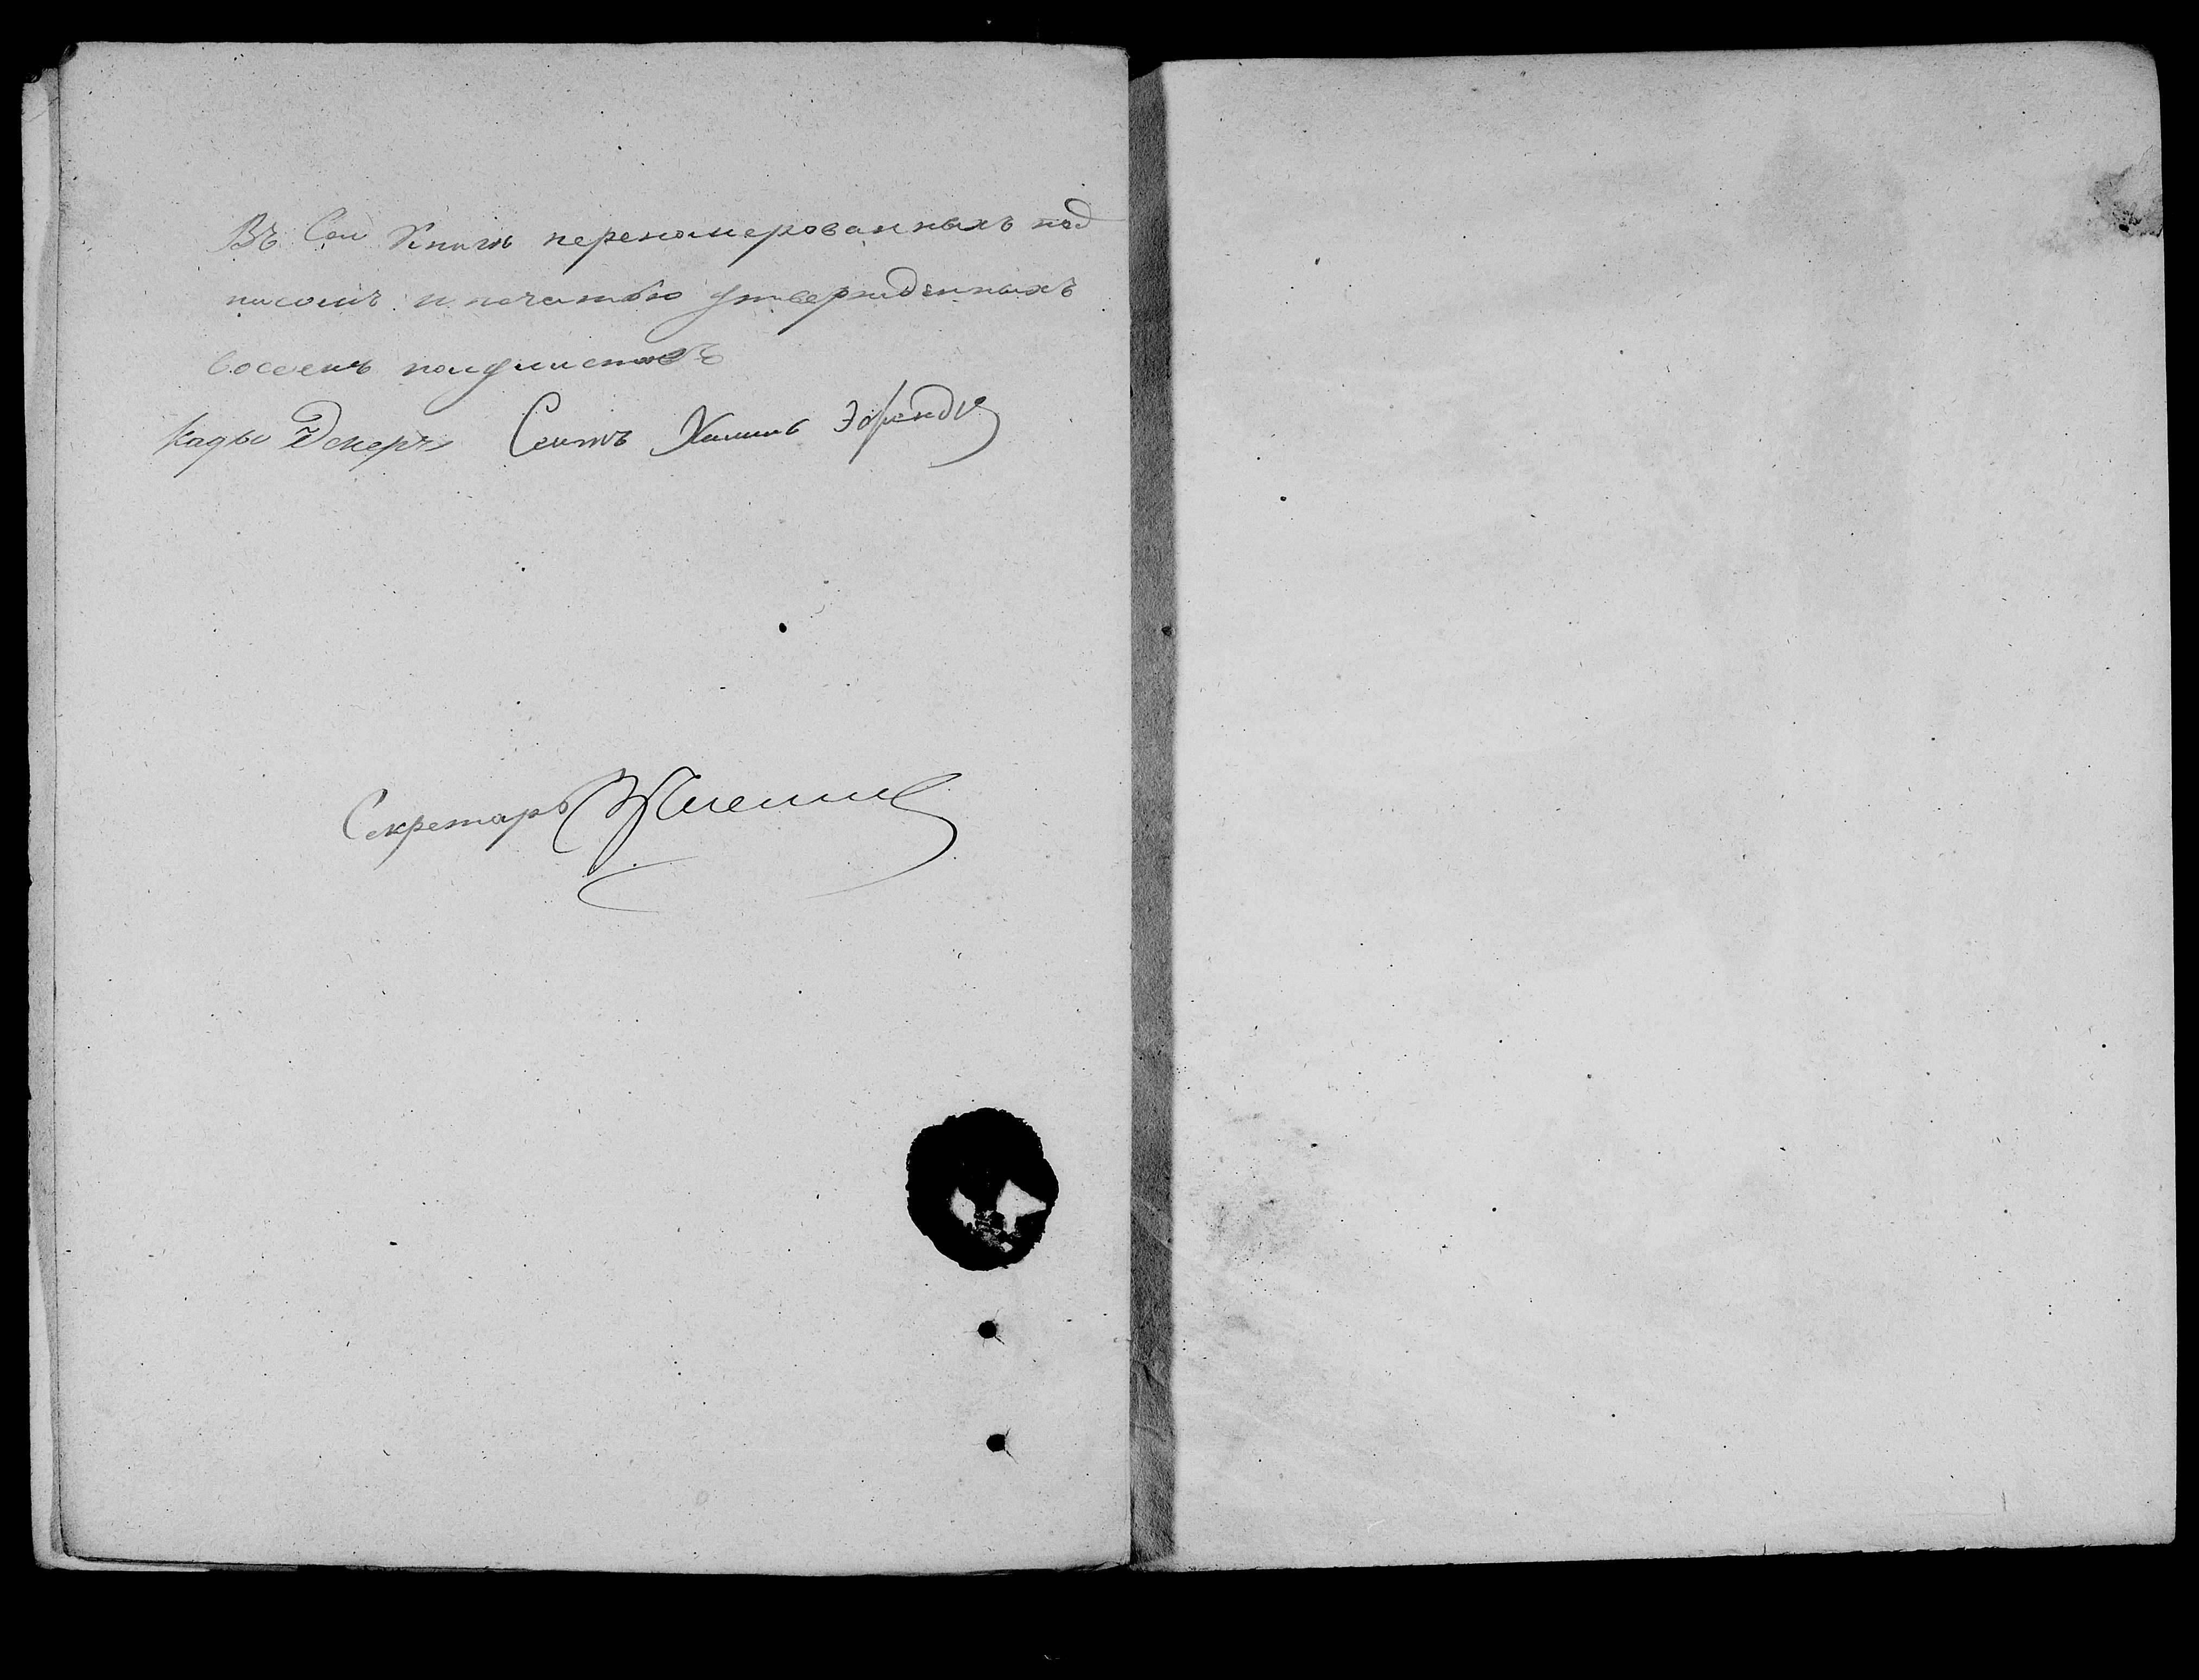 Въ Сей Книги перенамерованныхъ под
писомъ и печатью утвержденныхъ
восемъ полулистовъ
Кадыэскеръ Сеитъ Халиль Эфенди
Секретарь